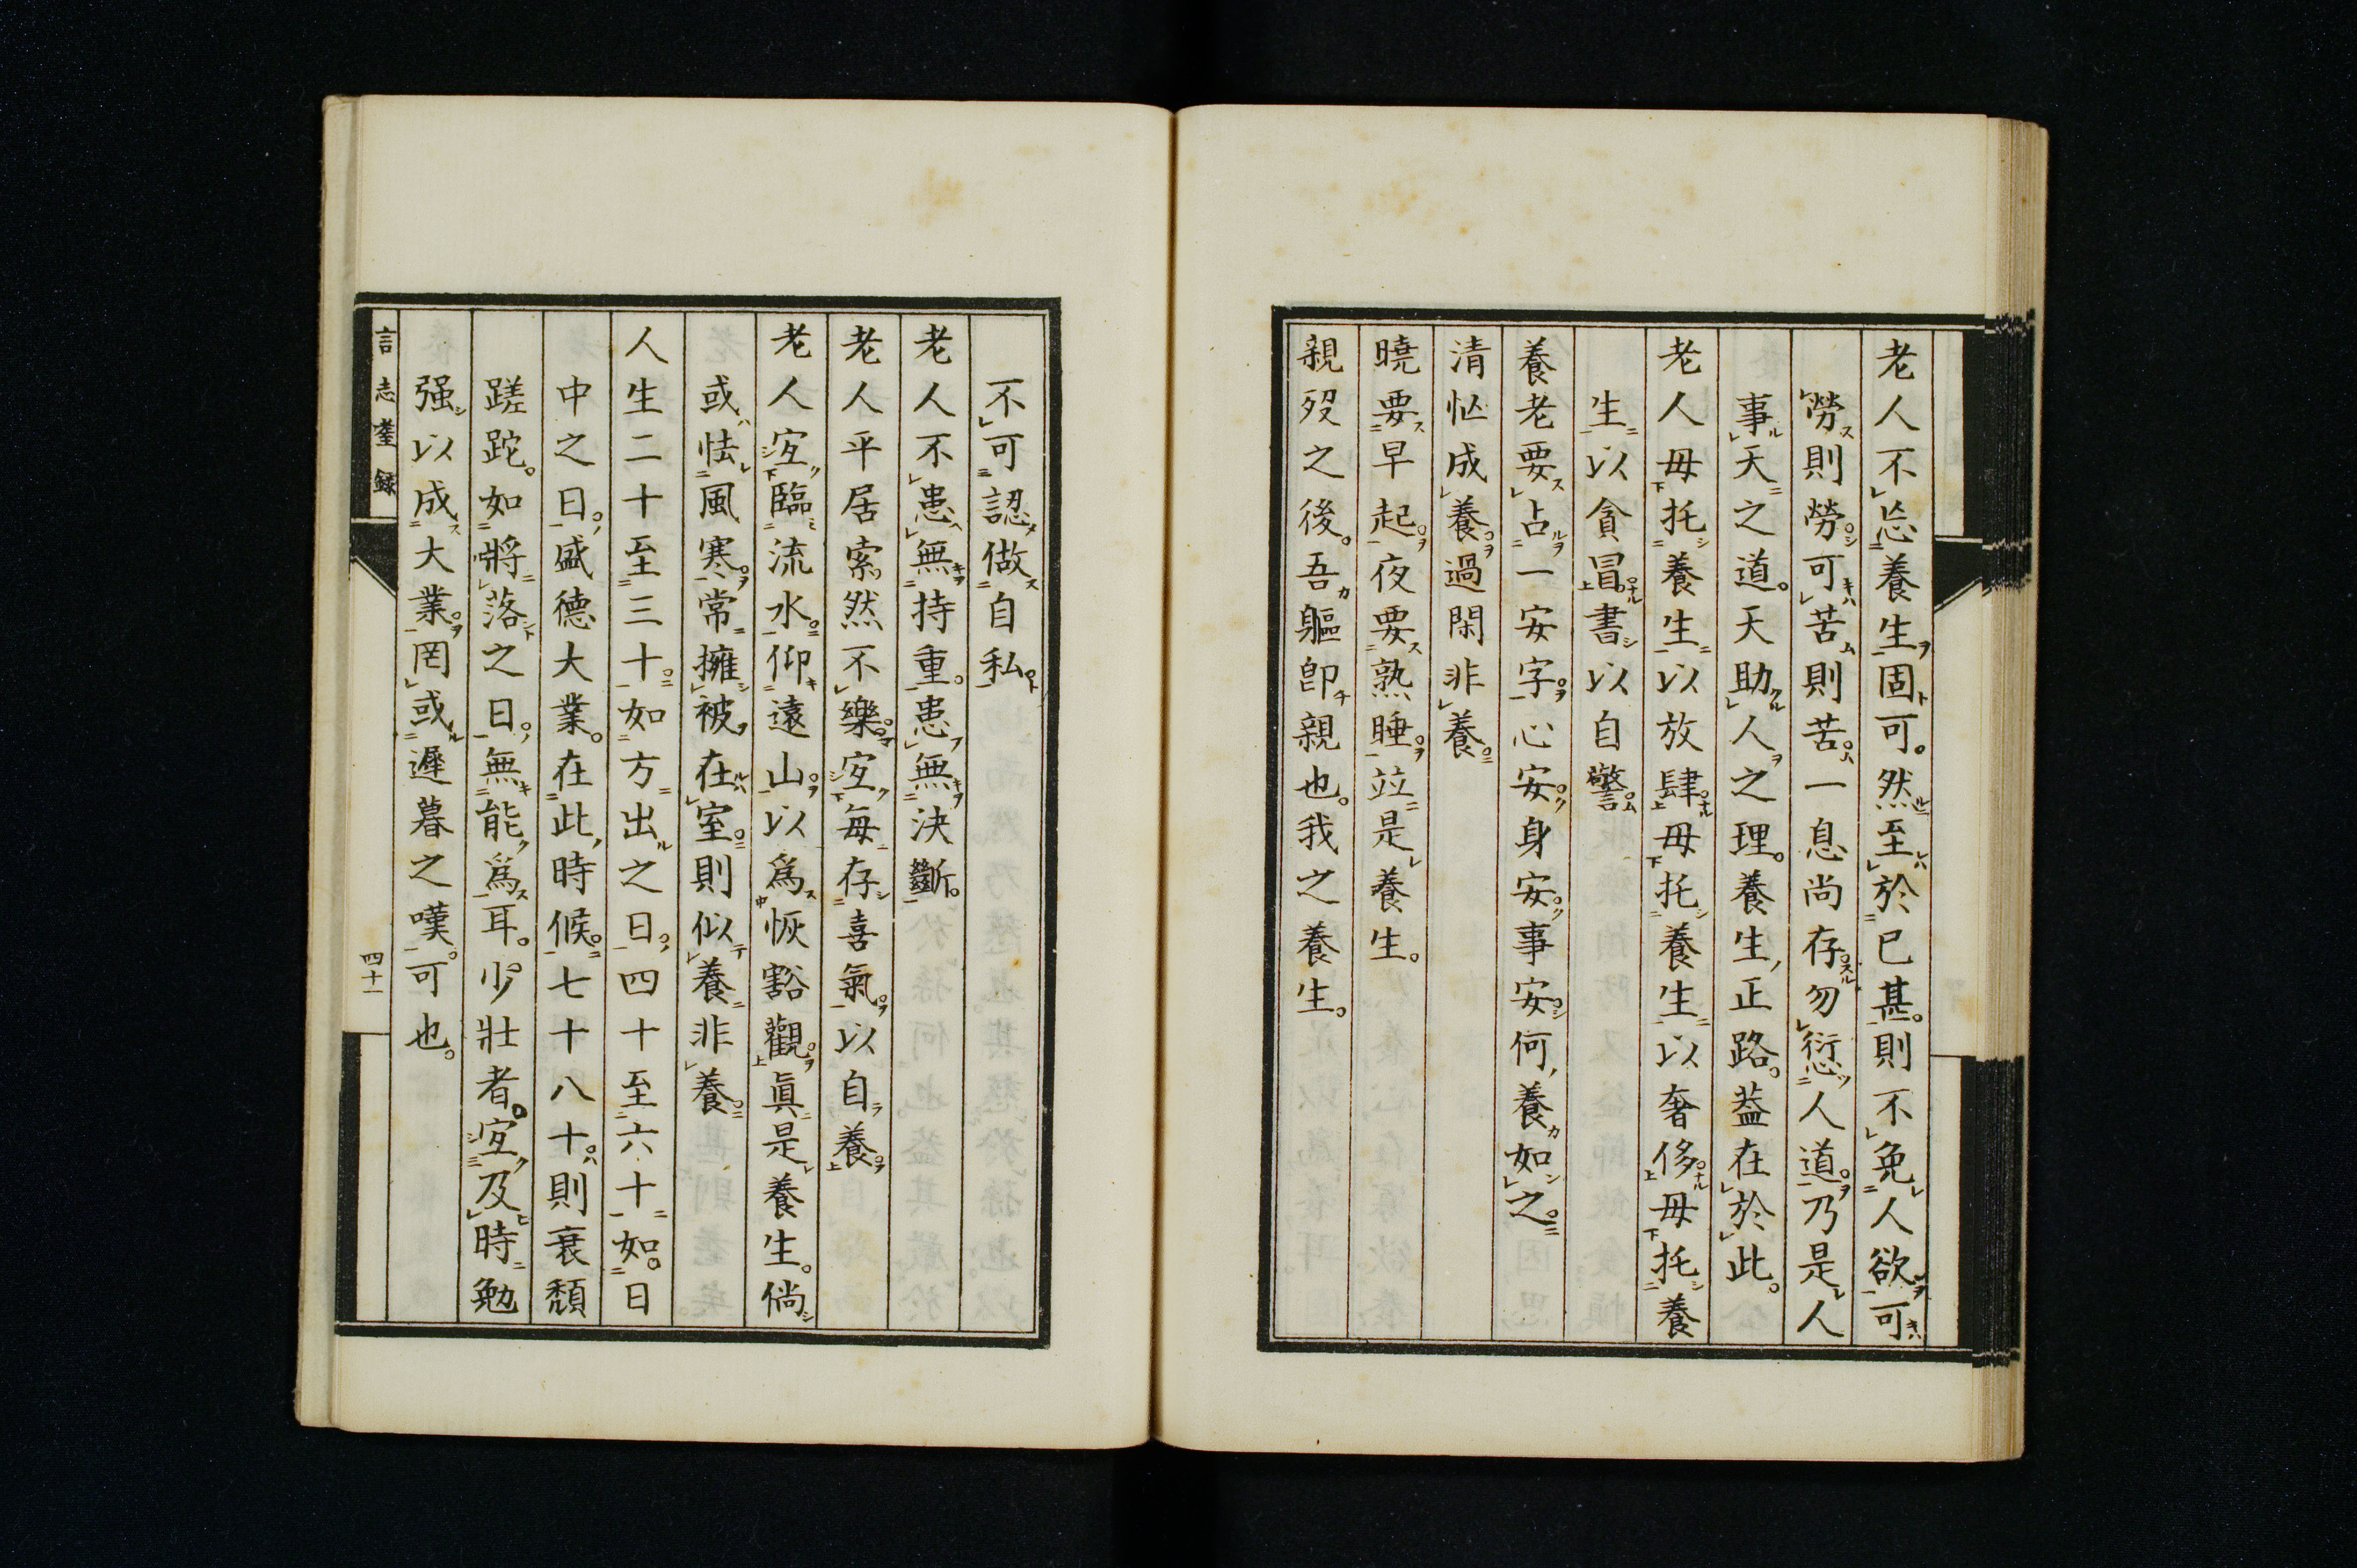 老人不忘養生固可。然至於已甚。則不免人欲可
勞則勞可苦則苦。一息尚存勿愆人道乃是人
事天之道。天助人之理。養生正路。葢在於此。
老人毋托養生以放肆毋托養生以奢侈毋托養
生以貪冒書以自警
養老要占一安字心安身安事安何養如之
清忙成養過閑非養
曉要早起夜要熟睡竝是養生。
親歿之後。吾軀卽親也。我之養生。
不可認做自私
老人不患無持重。患無決斷。
老人平居索然不樂宜毎存喜氣以自養
老人宜臨流水仰遠山以爲恢豁觀眞是養生。倘
或怯風寒常擁被在室則似養非養
人生二十至三十如方出之日四十至六十如日
中之日盛德大業。在此時候七十八十則衰頽
蹉跎。如將落之日無能爲耳。少壯者宜及時勉
强以成大業罔或遲暮之嘆。可也。
言志耋録
四十一